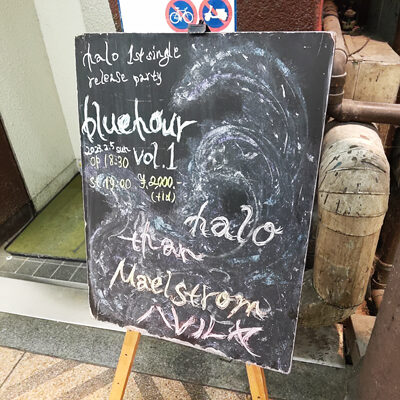 halo 1st single
release party
bluehour
vol.1
2023.2.5 sun
OP 18:30
ST 19:00
¥2,000.-
(+1d)
halo
than
Maelstrom